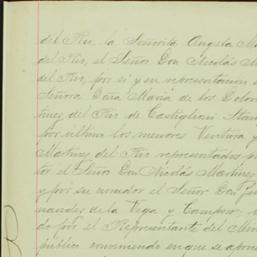 del Rio, la Señorita Angela M
del Rio, el Señor Don Nicolás M
del Rio, por si y en representacion
Señora Doña Maria de los Dolor
tines del Rio de Castiglioni
por último los menores Ventura y
Martines del Rio representados p
tor el Señor Don Nicolás Martines
y por su curador el Señor Don
nandes de la Vega y Campero
do por el Representante del Min
público conviniendo en que se apro